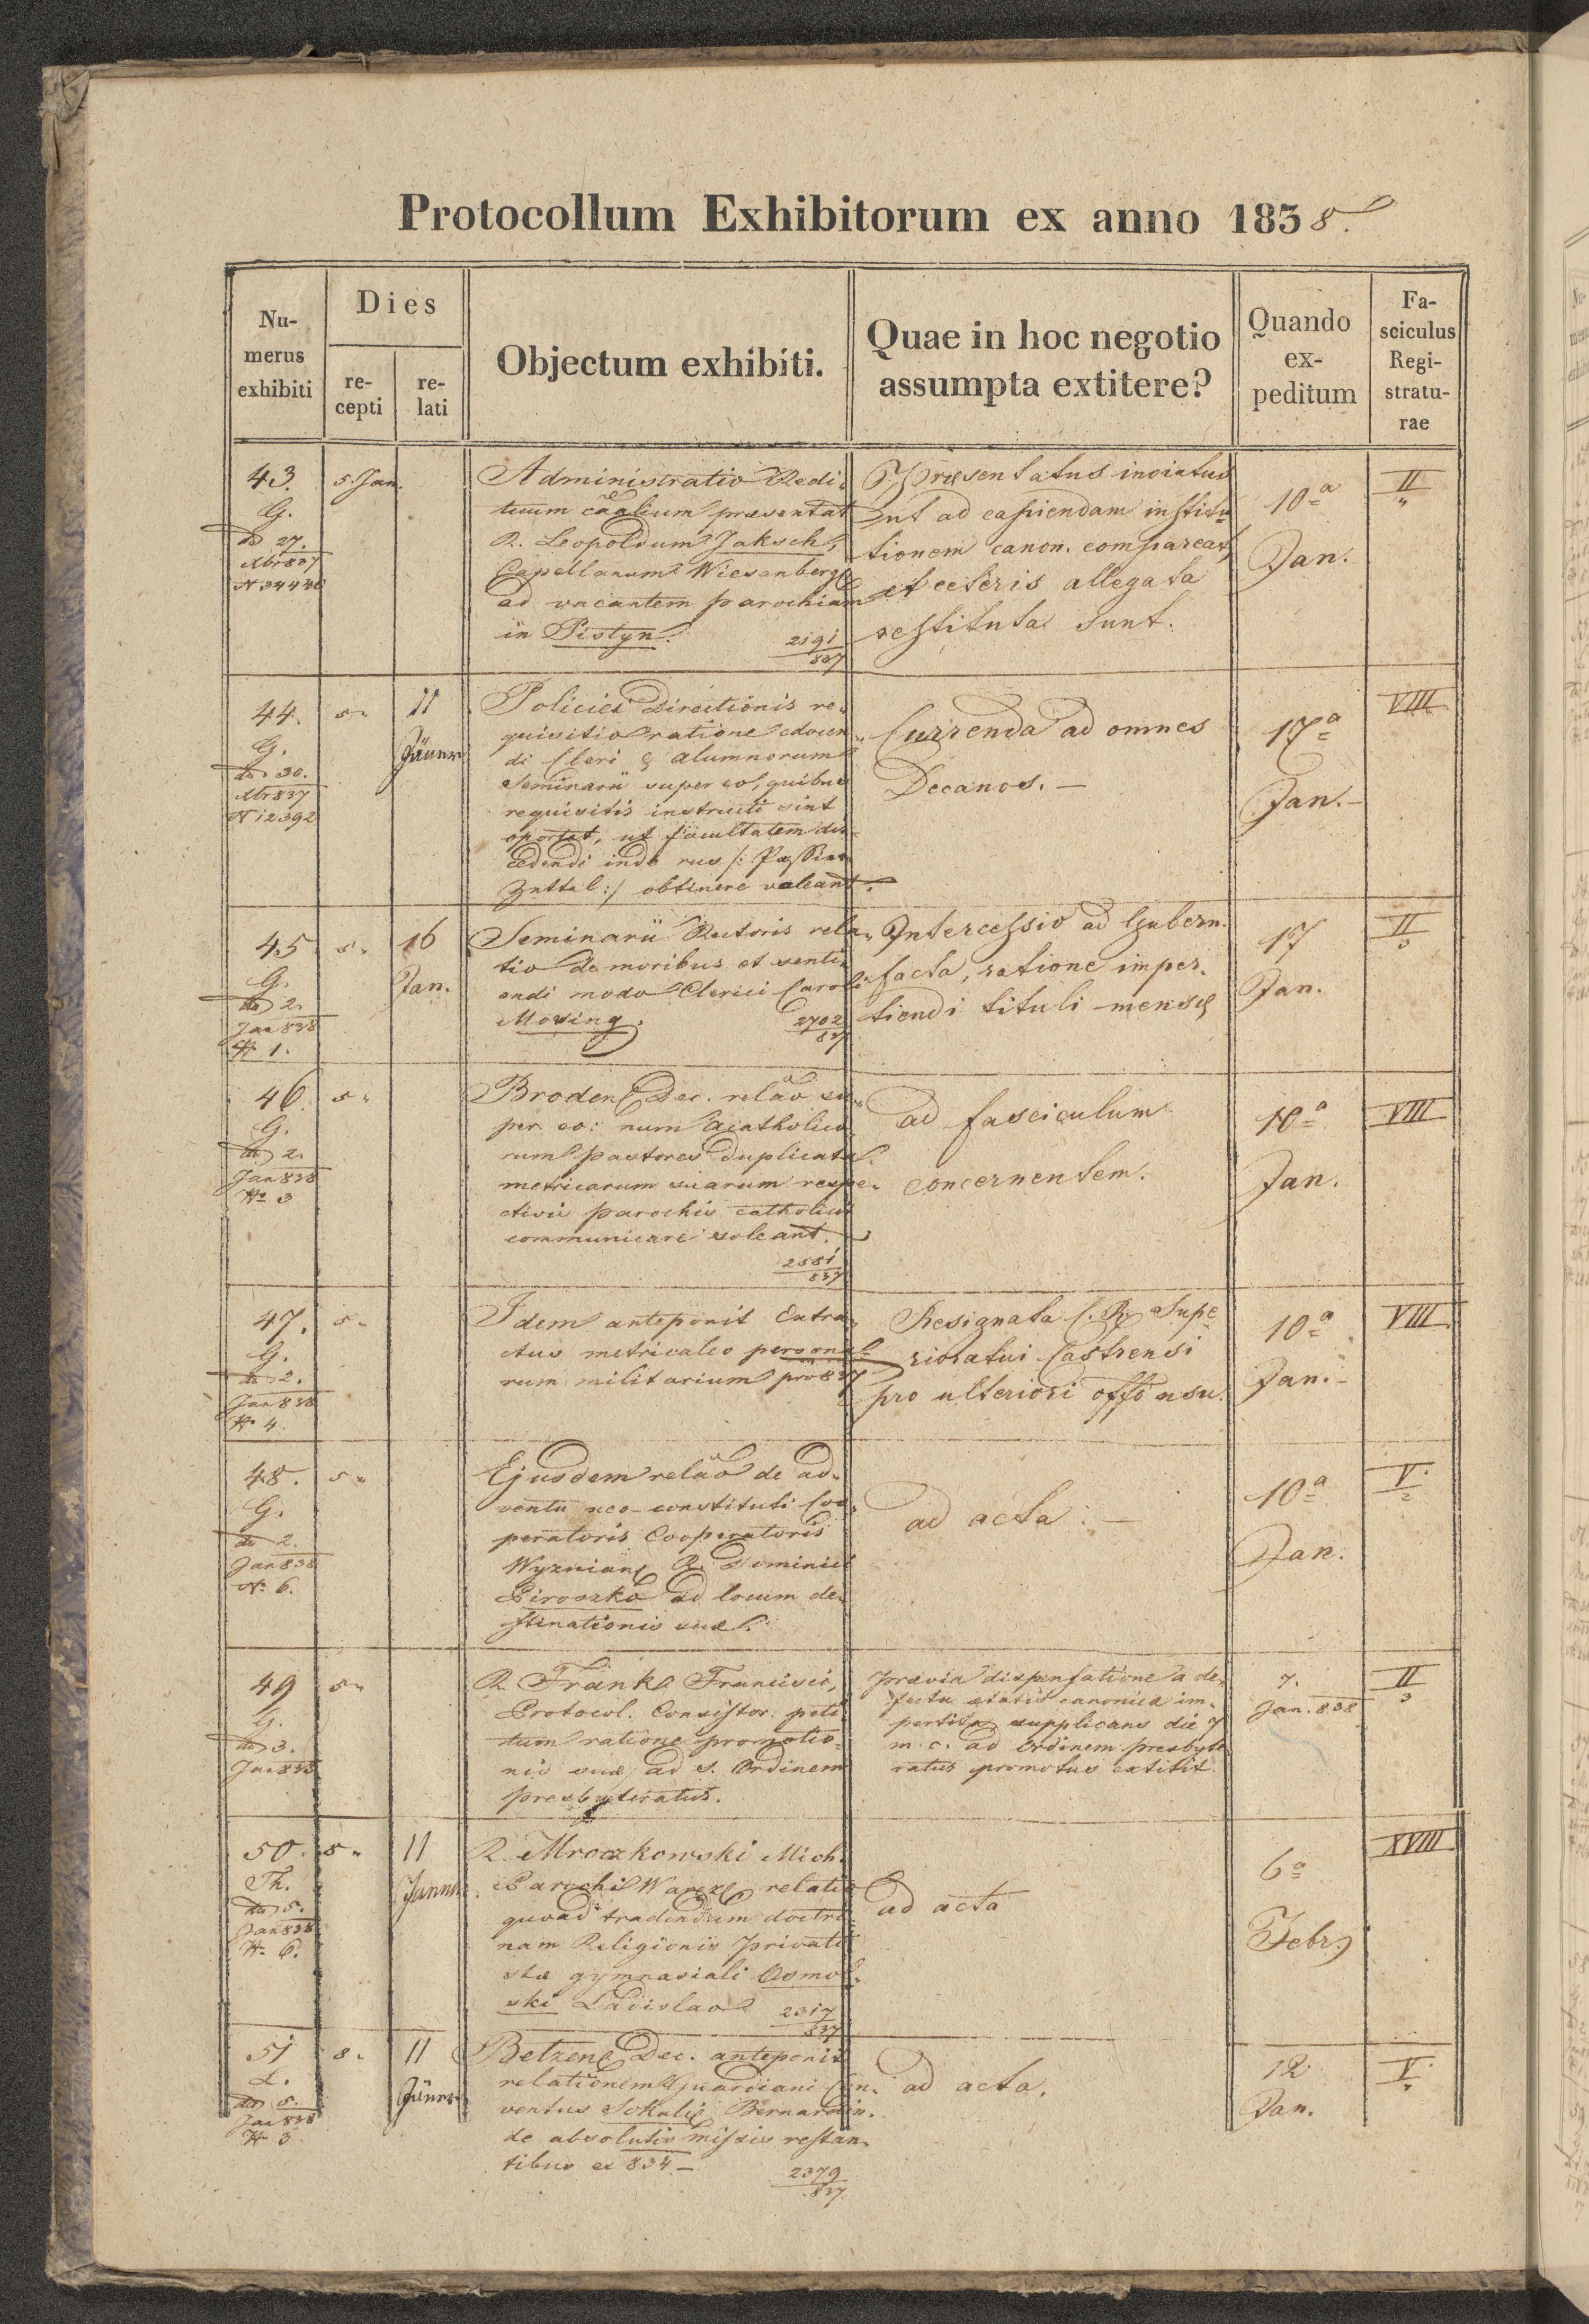 Protocollum Exhibitorum ex anno 1838.
Nu-
merus
exhibiti
Dies
re-
cepti
re-
lati
Objectum exhibiti.
Quae in hoc negotio
assumpta extitere?
Quando
ex-
peditum
Fa-
sciculus
Regi-
stratu-
rae
43.
G.
dd 27.
Xbr 837
N 34446
5. Jan.
Administratio Redi-
tuum caalium praesentat
R. Leopoldum Jaksch,
Capellanum Wiesenberge
ad vacantem parochiam
in Pistyn.
2191
837
Praesentatus inviatus
ut ad capiendam institu-
tionem canon. compareat,
et ceteris allegata
restituta sunt.
10a
Jan.
II
"
44.
G.
dd 30.
Xbr 837
N 12392
5 "
11
Jänner
Policiei Directionis re-
quisitio ratione edocen-
di Cleri & alumnorum
Seminarii super eo, quibus
requisitis instructi sint
oportet, ut facultatem dis-
cedendi inde rus /: Passier
Zettel :/ obtinere valeant.
Currenda ad omnes
Decanos. —
17a
Jan. —
VIII
45
G.
dd 2.
Jan 838
N 1.
5 "
16
Jan.
Seminarii Rectoris rela-
tio de moribus et senti-
endi modo Clerici Caroli
Mosing.
2702
837
Intercessio ad Gubern.
facta, ratione imper-
tiendi tituli mensae
17
Jan.
II
3
46
G.
dd 2.
Jan 838
No 3
5 "
Broden Dec. relao su-
per eo: num acatholico-
rum pastores duplicata
metricarum suarum respe-
ctivis parochis catholicis
communicare soleant.
2551
837
ad fasciculum
concernentem.
10a
Jan.
VIII
47.
G.
dd 2.
Jan 838
No 4.
5 "
Idem anteponit Extra-
ctus metricales persona-
rum militarium pro 837
Resignata C. R. Supe-
rioratui Castrensi
pro ulteriori offensu.
10a
Jan. —
VIII
48.
G.
dd 2.
Jan 838
No 6.
5 "
Ejusdem relao de ad-
ventu neo-constituti Coo-
peratoris Cooperatoris
Wyzniane R. Dominici
Piroszko ad locum de-
stinationis suae.
ad acta: —
10a
Jan.
V.
2
49
G.
dd 3.
Jan 838
5 "
R. Frank Francisci,
Protocol. Consistor. peti-
tum ratione promotio-
nis suae ad s. Ordinem
presbyteratus.
Praevia dispensatione a de-
fectu aetatis canonicae im-
pertita supplicans die 7
m. c. ad Ordinem presbyte-
ratus promotus extitit.
7.
Jan. 838
II
3
50.
Th.
dd 5.
Jan 838
N. 6.
8 "
11
Janner
R. Mroczkowski Mich.
Parochi Warez relatio
quoad tradendam doctri-
nam Religionis privati-
stae gymnasiali Osmol-
ski Ladislao
2317
837
ad acta
6a
Febr.
XVIII
51
L.
dd 5.
Jan 838
N 3
8 "
11
Jänner
Belzen Dec. anteponit
relationem Guardiani Con-
ventus Sokalie Bernardin.
de absolutis missis restan-
tibus ex 834 —
2379
837
ad acta.
12
Jan.
V.
"